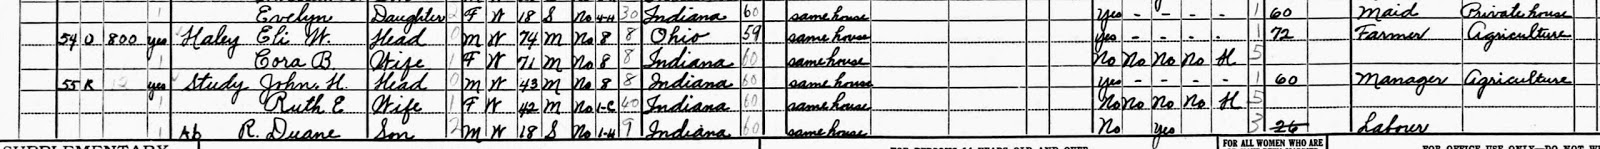 1 Evelyn Daughter 2 F W 18 S No H-4 30 Indiana 60 same house Yes - - - - 1 60 Maid Private house
54 O 800 yes Haley Eli W. Head 0 M W 74 M No 8 8 Ohio 59 same house yes - - - - 1 72 Farmer Agriculture
1 Cora B. Wife 1 F W 71 M No 8 8 Indiana 60 same house No No No No H 5
55 R yes Study John H. Head 0 M W 43 M No 8 8 Indiana 60 same house yes - - - - 1 60 Manager Agriculture
1 Ruth E Wife 1 F W 42 M No 1-C 40 Indiana 60 same house No No No No H 5
1 Ab R. Duane Son 2 M W 18 S No 1-H 9 Indiana 60 same house No Yes 3 26 Labour
SUPPLEMENTARY FOR PERSONS 14 YEARS OLD AND OVER FOR ALL WOMEN WHO ARE FOR OFFICE USE ONLY—DO NOT